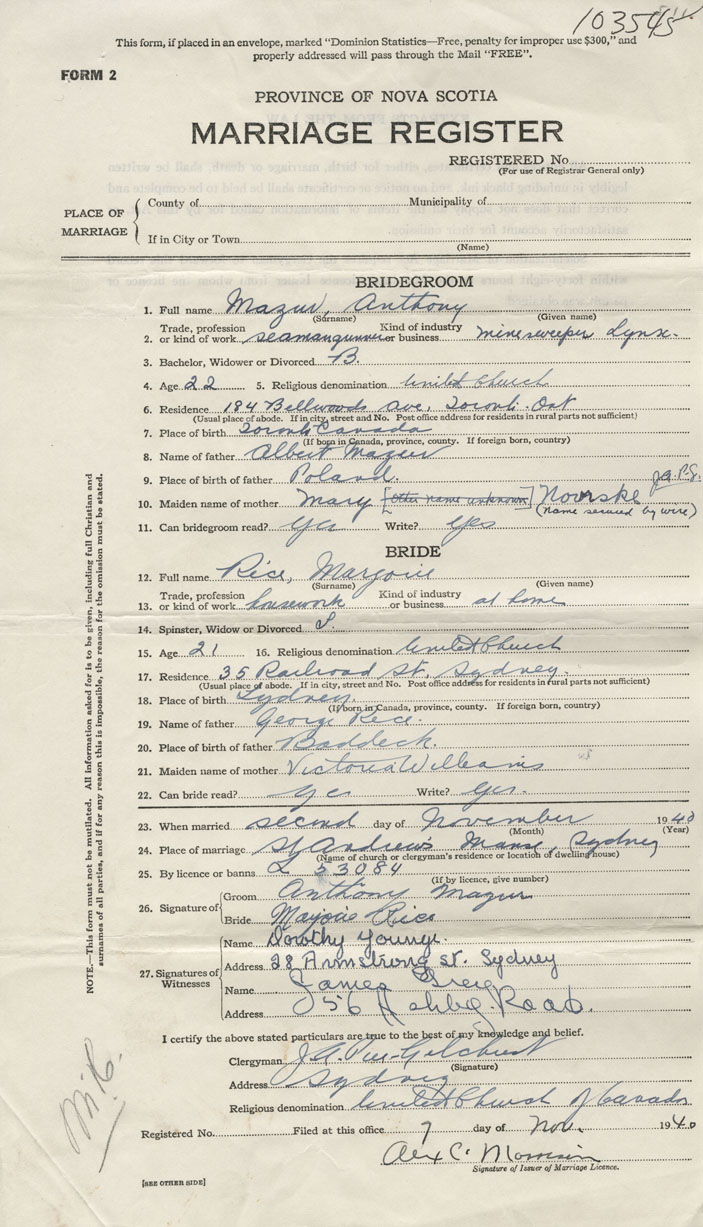 103545
This form, if placed in an envelope, marked "Dominion Statistics—Free, penalty for improper use $300," and
properly addressed will pass through the Mail "FREE".
FORM 2
PROVINCE OF NOVA SCOTIA
MARRIAGE REGISTER
REGISTERED No.
(For use of Registrar General only)
PLACE OF MARRIAGE
County of Municipality of
If in City or Town
(Name)
BRIDEGROOM
1. Full name Mazur, Anthony
(Surname) (Given name)
Trade, profession Kind of industry
2. or kind of work seamangunner or business minesweeper Lynx.
3. Bachelor, Widower or Divorced B.
4. Age 22 5. Religious denomination United Church
6. Residence 184 Bellwoods Ave, Toronto Ont
(Usual place of abode. If in city, street and No. Post office address for residents in rural parts not sufficient)
7. Place of birth Toronto Canada
(If born in Canada, province, county. If foreign born, country)
8. Name of father Albert Mazur
9. Place of birth of father Poland.
10. Maiden name of mother Mary [other name unknown] Novrske J.A.P.G.
(Name secured by wire)
11. Can bridegroom read? Yes Write? Yes
BRIDE
12. Full name Rice, Marjorie
(Surname) (Given name)
Trade, profession Kind of industry
13. or kind of work housework or business at home
14. Spinster, Widow or Divorced S.
15. Age 21 16. Religious denomination United Church
17. Residence 35 Railroad St, Sydney.
(Usual place of abode. If in city, street and No. Post office address for residents in rural parts not sufficient)
18. Place of birth Sydney.
(If born in Canada, province, county. If foreign born, country)
19. Name of father George Rice.
20. Place of birth of father Baddeck.
21. Maiden name of mother Victoria Williams
22. Can bride read? Yes Write? Yes.
23. When married second day of November 1940
(Month) (Year)
24. Place of marriage St Andrews Manse, Sydney
(Name of church or clergyman's residence or location of dwelling house)
25. By licence or banns L 53084
(If by licence, give number)
26. Signature of
Groom Anthony Mazur
Bride Marjorie Rice
27. Signatures of Witnesses
Name Dorothy Young.
Address 28 Armstrong St. Sydney
Name James Greig
Address 56 Ashby Road.
I certify the above stated particulars are true to the best of my knowledge and belief.
Clergyman J.A. Gilchrist
(Signature)
Address Sydney
Religious denomination United Church of Canada
Registered No. Filed at this office 7 day of Nov. 1940
Alex C. Morrison
Signature of Issuer of Marriage Licence.
[SEE OTHER SIDE]
NOTE.—This form must not be mutilated. All information asked for is to be given, including full Christian and
surnames of all parties, and if for any reason this is impossible, the reason for the omission must be stated.